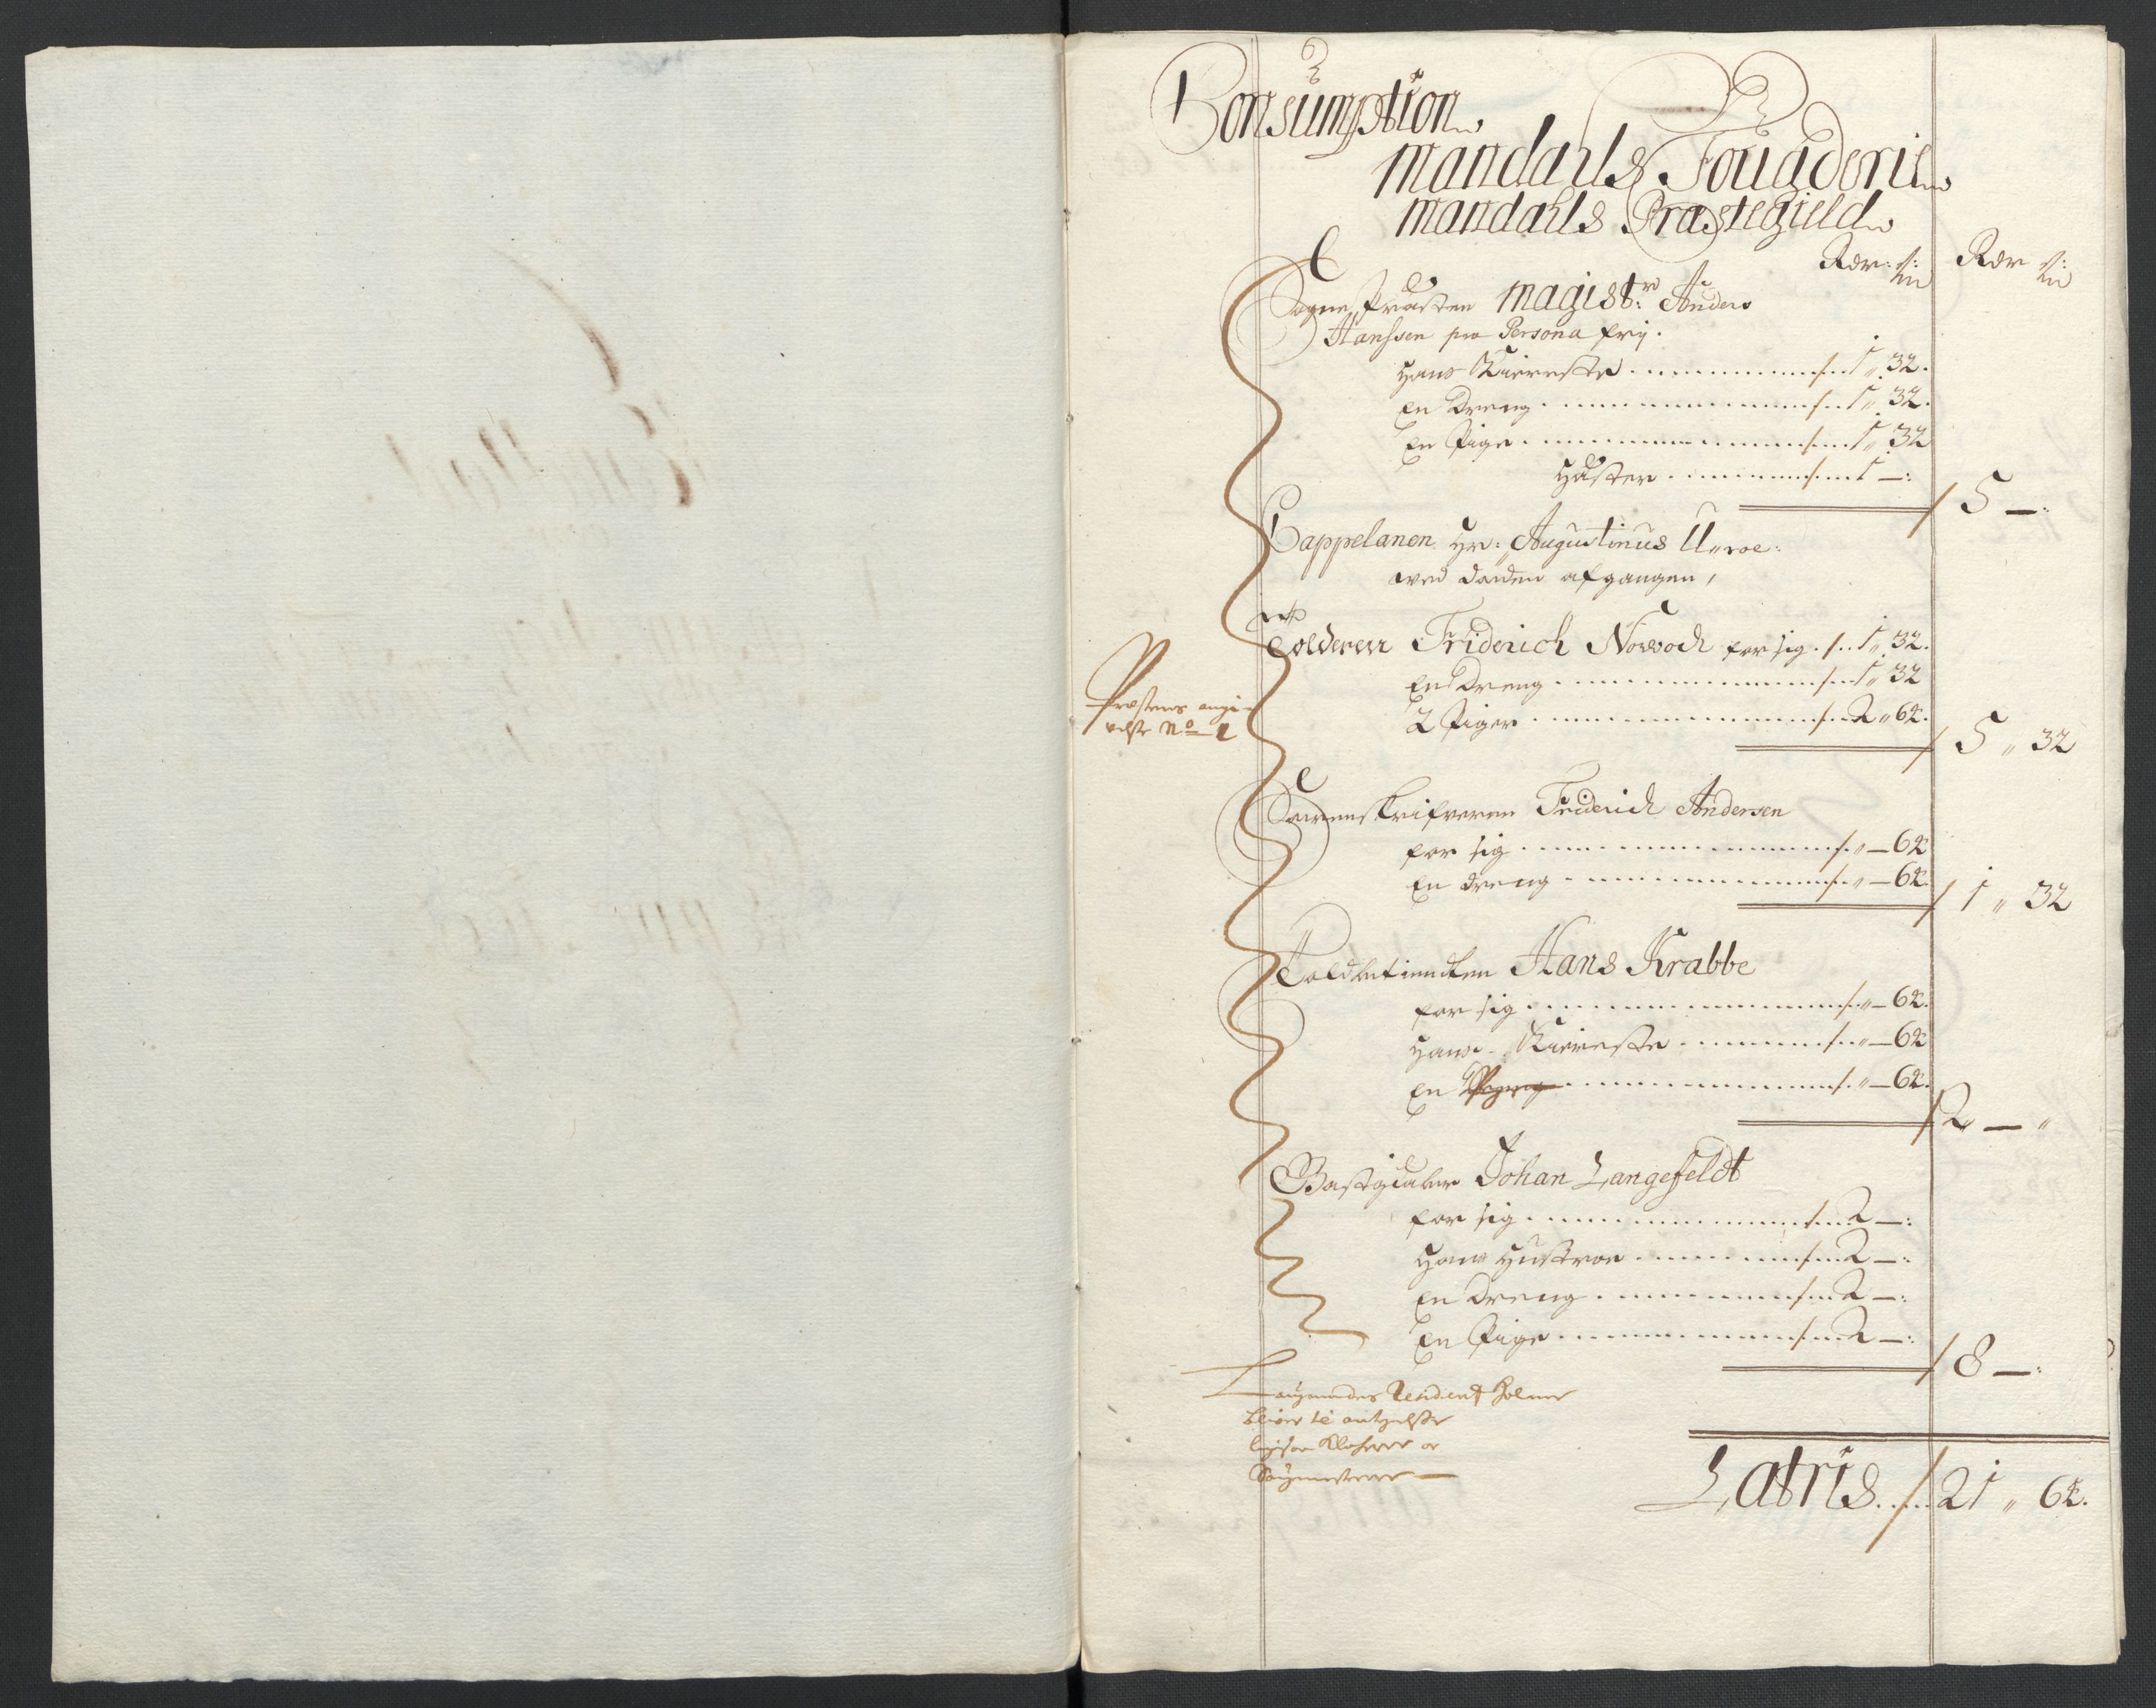 Consumption
Mandahls Fougderie
Mandahls Præstegield
Rdr: s: Rdr s:
Sogne Præsten Magistr: Anders
Hanssen for Persona frj.
Hans Kiereste / 1 „ 32.
En Dreng / 1 „ 32.
En Pige / 1 „ 32
Heste / 1 —:
/ 5 —:
Cappelanen Hr: Augustinus
ved døden afgangen,
Tolderen Friderich for sig / 1 „ 32.
En Dreng / 1 „ 32
2 Piger / 2 „ 64.
/ 5 „ 32
Præstens angi-
velse No 1
Sorenskrifveren Friderich Andersen
for sig / „ — 64
En dreng / „ — 64.
/ 1 „ 32
Toldbetienten Hans Krabbe
for sig / „ — 64.
Hans Kiereste / „ — 64
En / „ — 64.
/ 2 — „
Gastgiæber Johan Langefeldt
for sig / 2 —:
Hans Hustroe / 2 —:
En Dreng / 2 —:
En Pige / 2 —:
/ 8 —:
Latris / 21 „ 64.